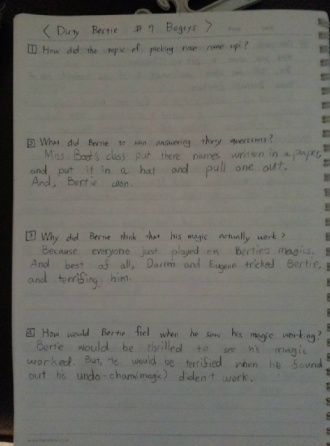 < Dirty Bertie # 9 Bogeys >
1 How did the topic of picking nose come up?
2 What did Bertie to win answering three questions?
Miss Boot's class put there names written in a paper,
and put it in a hat and pull one out.
And, Bertie won.
3 Why did Bertie think that his magic actually work?
Because everyone just played on Bertie's magics.
And best of all, Darren and Eugene tricked Bertie,
and terrifing him.
4 How would Bertie feel when he saw his magic working?
Bertie would be thrilled to see his magic
worked. But, he would be terrified when he found
out his undo-charm(magic) dident work.